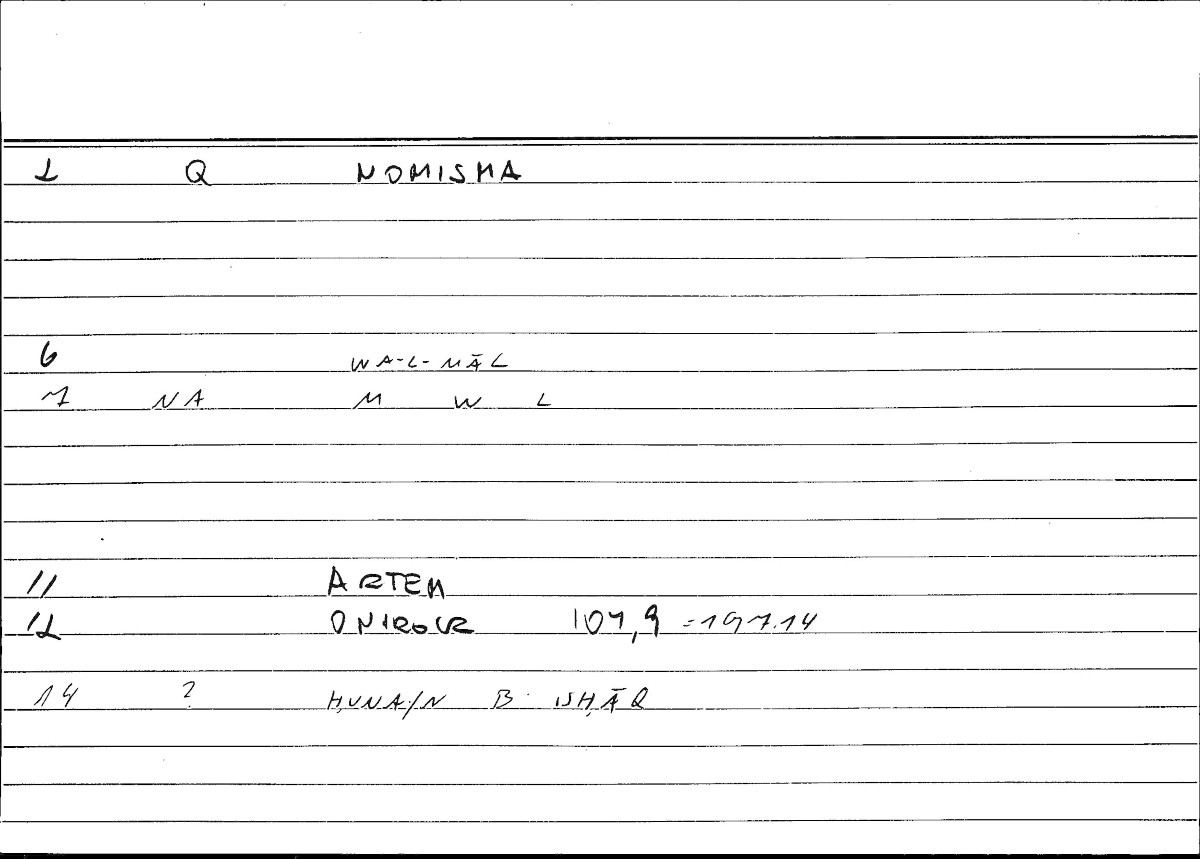 2 Q NOMISMA
6 WA-L-MĀL
7 NA M W L
11 ARTEM
12 ONIROCR 107,9 = 197.14
14 ? ḤUNAIN B ISḤĀQ